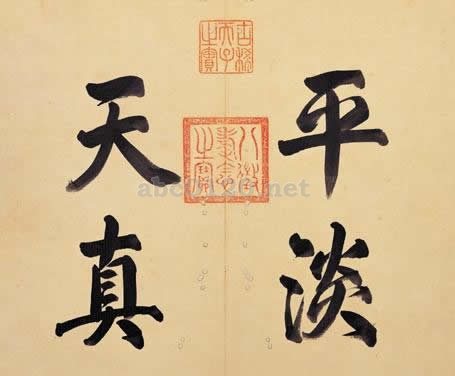 平淡
天真
古稀天子之寶
八徵耄念之寶
abc0126.net